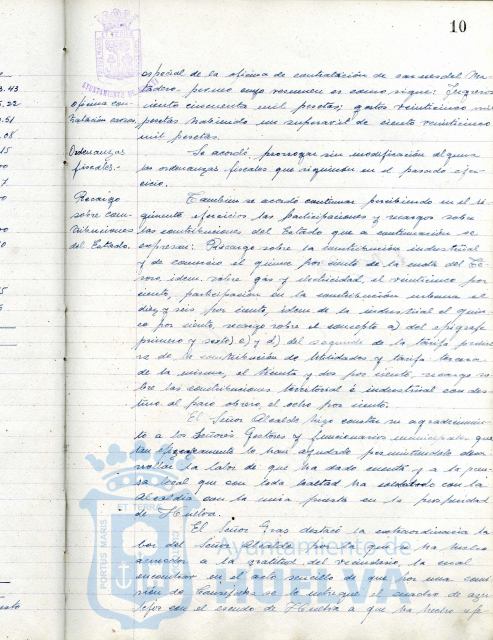 10
AYUNTAMIENTO DE
especial de la oficina de contratación de carnes del Ma-
tadero, por cuyo resumen es como sigue: Ingresos
ciento cincuenta mil pesetas; gastos veinticinco mil
pesetas habiendo un superavit de ciento veinticinco
mil pesetas.
oficina con-
tratación carnes.
Ordenanzas
fiscales.-
Se acordó prorrogar sin modificación alguna
las ordenanzas fiscales que rigieron en el pasado ejer-
cicio.
Recargo
sobre con-
tribuciones
del Estado.
También se acordó continuar percibiendo en el si-
guiente ejercicio las participaciones y recargos sobre
las contribuciones del Estado que a continuación se
expresan: Recargo sobre la contribución industrial
y de comercio el quince por ciento de la cuota del Te-
soro, idem sobre gas y electricidad, el veinticinco por
ciento, participación en la contribución urbana el
diez y seis por ciento, idem de la industrial el quin-
ce por ciento, recargo sobre el concepto a) del epígrafe
primero y sexto) c) y d) del segundo de la tarifa prime-
ra de la contribución de Utilidades y tarifa tercera
de la misma, el treinta y dos por ciento, recargo so-
bre las contribuciones territorial e industrial con des-
tino al paro obrero, el ocho por ciento.
El Señor Alcalde hizo constar su agradecimien-
to a los Señores Gestores y funcionarios municipales que
tan eficazmente le han ayudado permitiéndole desa-
rrollar la labor de que ha dado cuenta y a la pren-
sa local que con toda lealtad ha colaborado con la
Alcaldía con la mira puesta en la prosperidad
de Huelva.
El Señor Gras destacó la extraordinaria la-
bor del Señor Alcalde por la que se ha hecho
acreedor a la gratitud del vecindario, la cual
en el acto sencillo de que por una comi-
sión de se entregue el cuadro de azu-
lejos con el escudo de Huelva a que ha hecho
PORTUS MARIS
Ayuntamiento de
HUELVA